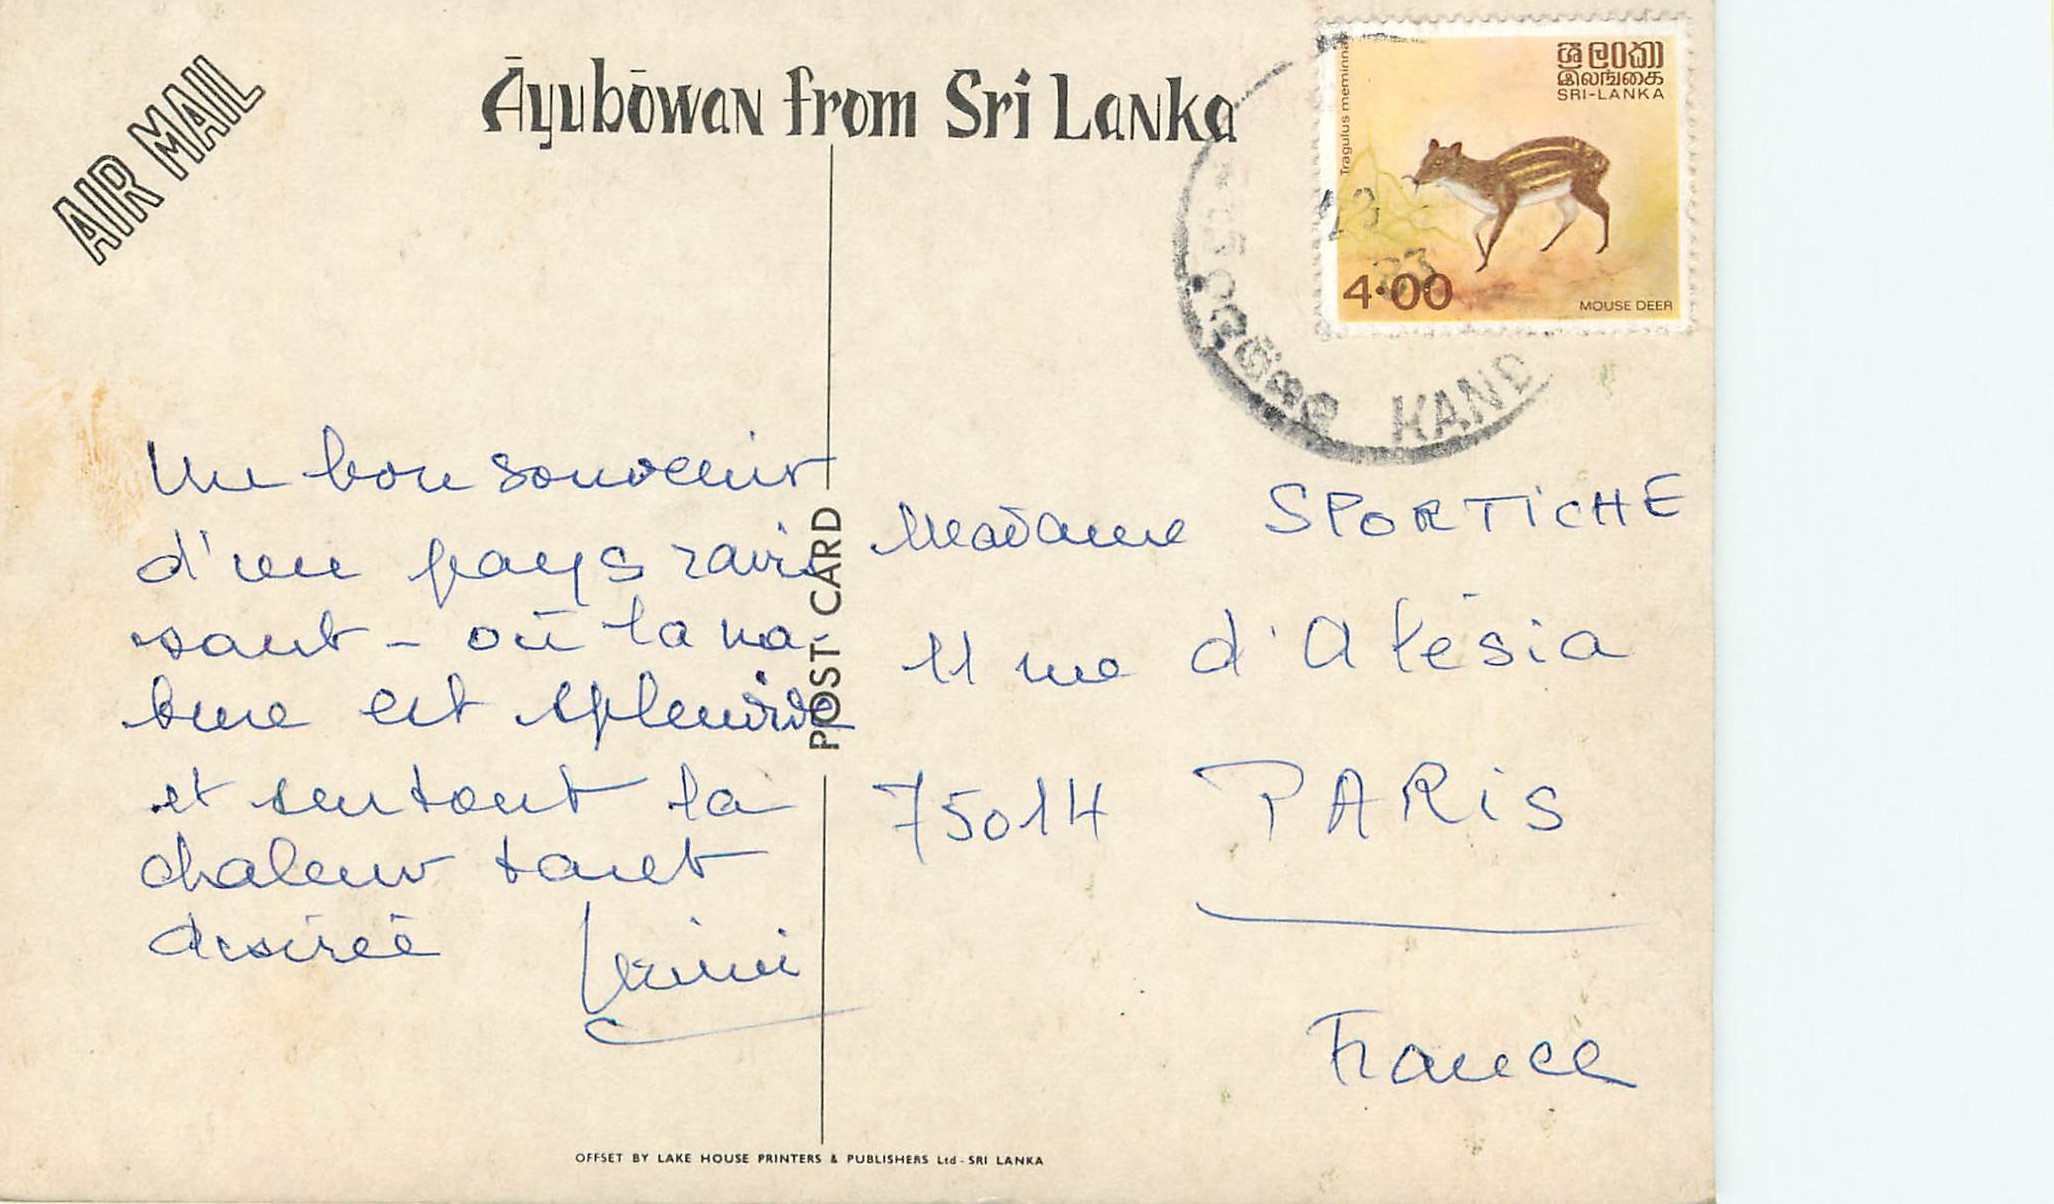 AIR MAIL
Āyubōwan from Sri Lanka
Tragulus meminna
ශ්‍රී ලංකා
இலங்கை
SRI-LANKA
4·00
MOUSE DEER
23
83
KAND
Un bon souvenir
d'un pays ravis
sant - où la na
ture est splendide
et surtout la
chaleur tant
désirée
Mimi
POST-CARD
Madame SPORTiCHE
11 rue d'Alésia
75014 PARiS
France
OFFSET BY LAKE HOUSE PRINTERS & PUBLISHERS Ltd - SRI LANKA